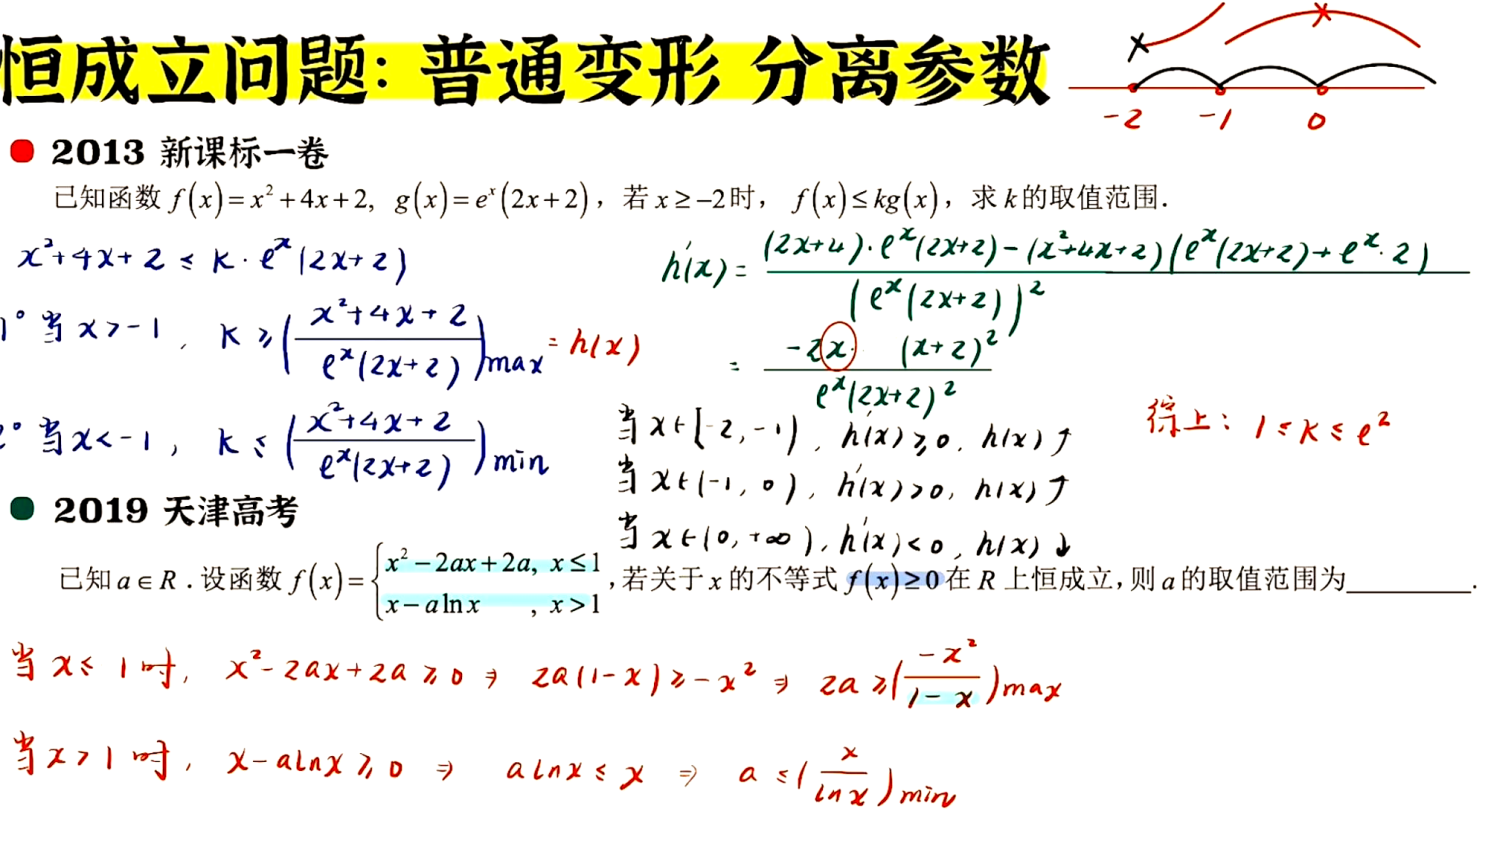 恒成立问题: 普通变形 分离参数
-2 -1 0
2013 新课标一卷
已知函数 f(x)=x²+4x+2, g(x)=eˣ(2x+2), 若 x≥-2时, f(x)≤kg(x), 求 k的取值范围.
x²+4x+2 ≤ k·eˣ(2x+2)
1° 当 x>-1, k ≥ ((x²+4x+2)/(eˣ(2x+2)))max = h(x)
2° 当 x<-1, k ≤ ((x²+4x+2)/(eˣ(2x+2)))min
h'(x) = ((2x+4)·eˣ(2x+2)-(x²+4x+2)(eˣ(2x+2)+eˣ·2))/(eˣ(2x+2))²
= (-2x·(x+2)²)/(eˣ(2x+2)²)
当 x∈[-2,-1), h'(x)≥0, h(x)↑
当 x∈(-1,0), h'(x)>0, h(x)↑
当 x∈(0,+∞), h'(x)<0, h(x)↓
综上: 1≤k≤e²
2019 天津高考
已知 a∈R.设函数 f(x)={x²-2ax+2a, x≤1
x-alnx , x>1
,若关于 x 的不等式 f(x)≥0 在 R 上恒成立,则 a 的取值范围为________.
当 x≤1时, x²-2ax+2a≥0 ⇒ 2a(1-x)≥-x² ⇒ 2a≥(-x²/(1-x))max
当 x>1时, x-alnx≥0 ⇒ alnx≤x ⇒ a≤(x/lnx)min